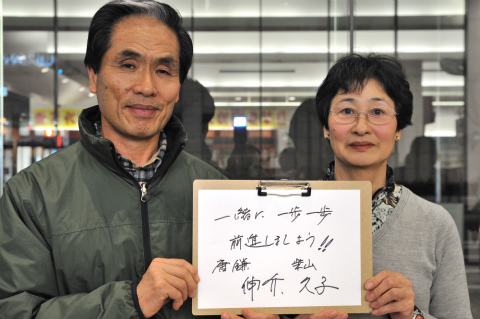 一緒に 一歩一歩
前進しましょう!!
唐鎌 柴山
伸介、久子